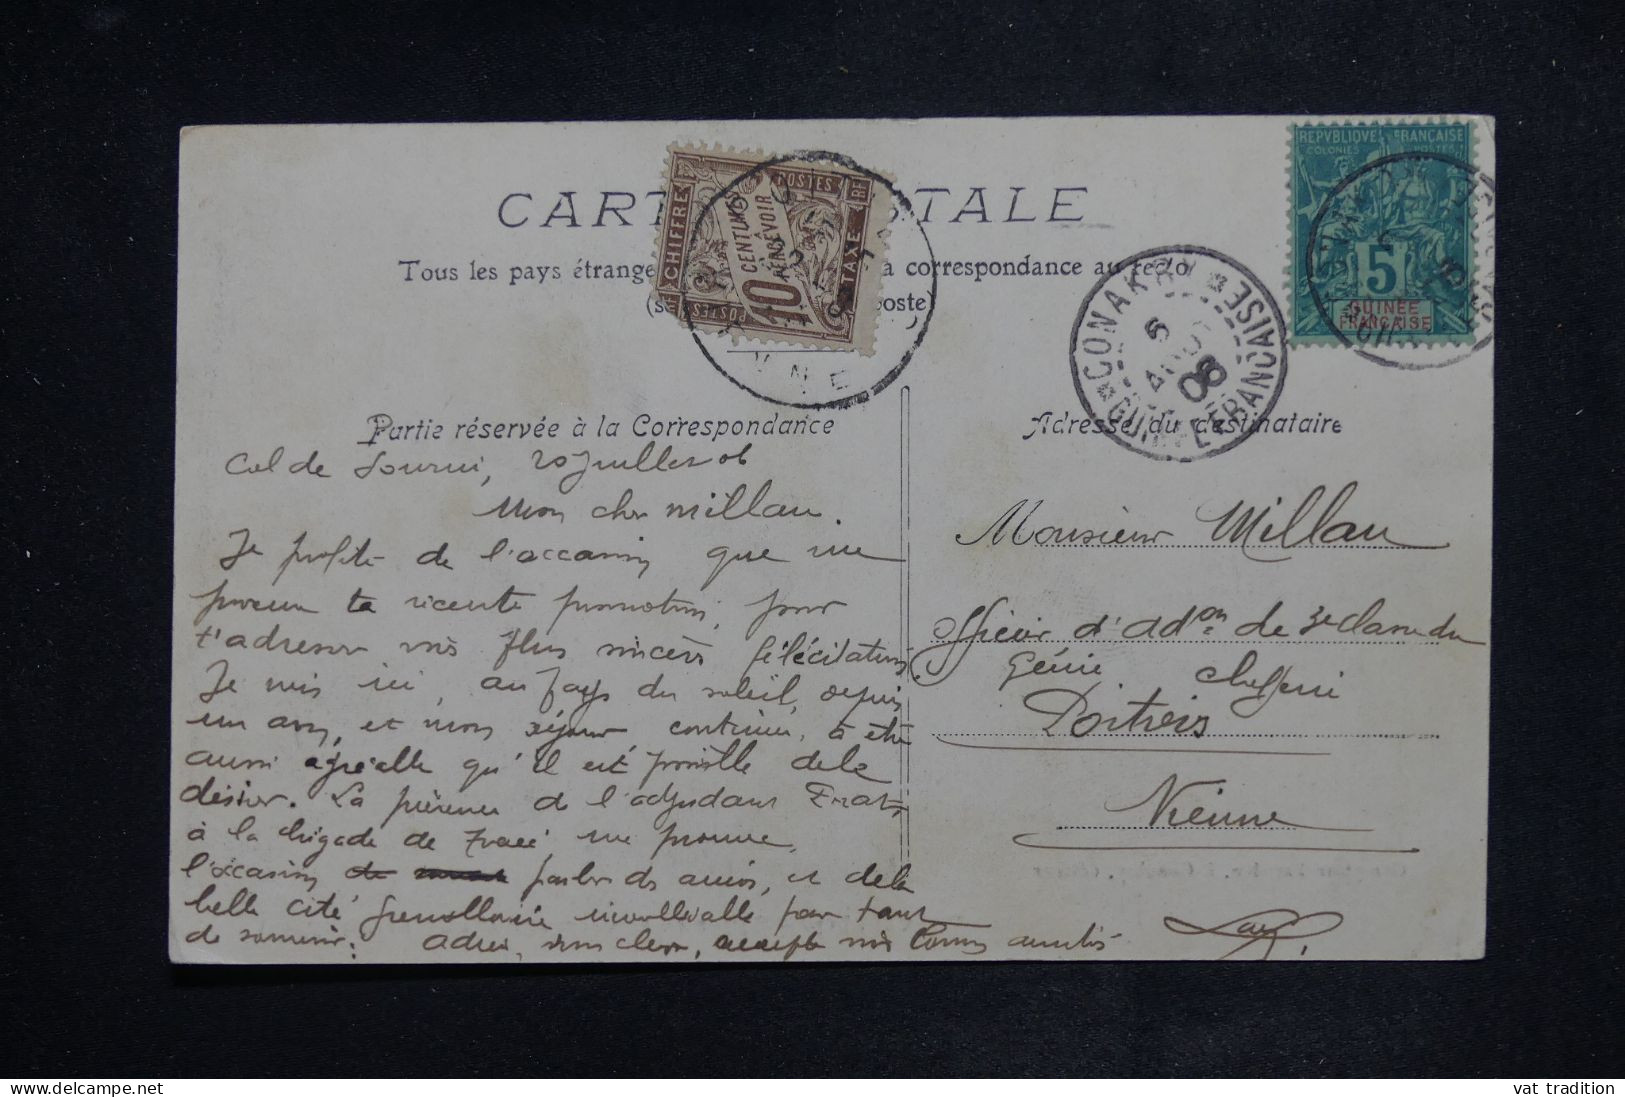 CARTE POSTALE
Tous les pays étrange a correspondance au recto
oste)
CHIFFRE TAXE
POSTES RF
10 CENTIMES À PERCEVOIR
POSTES
VIENNE
REPVBLIQVE FRANÇAISE
COLONIES POSTES
5
GUINÉE
FRANÇAISE
CONAKRY
6
AOUT
06
GUINÉE FRANÇAISE
Partie réservée à la Correspondance
Adresse du destinataire
Col de 20 Juillet 06
Mon cher Millau.
Je profite de l'occasion que me
ta récente promotion, pour
t'adresser mes plus sincères félécitations
Je suis ici, au pays du soleil, depuis
un an, et mon séjour continue, à être
aussi agréable qu'il est possible de le
désirer. La présence de l'adjudant
à la brigade de me procure
l'occasion parler de amis, et de la
belle cité grenobloise inoubliable par tant
de souvenir. Adieu, mon cher, accepte mes bonnes amitiés
Monsieur Millau
officier d'Adon de 3e classe du
Génie chefferie
Poitiers
Vienne
vat tradition